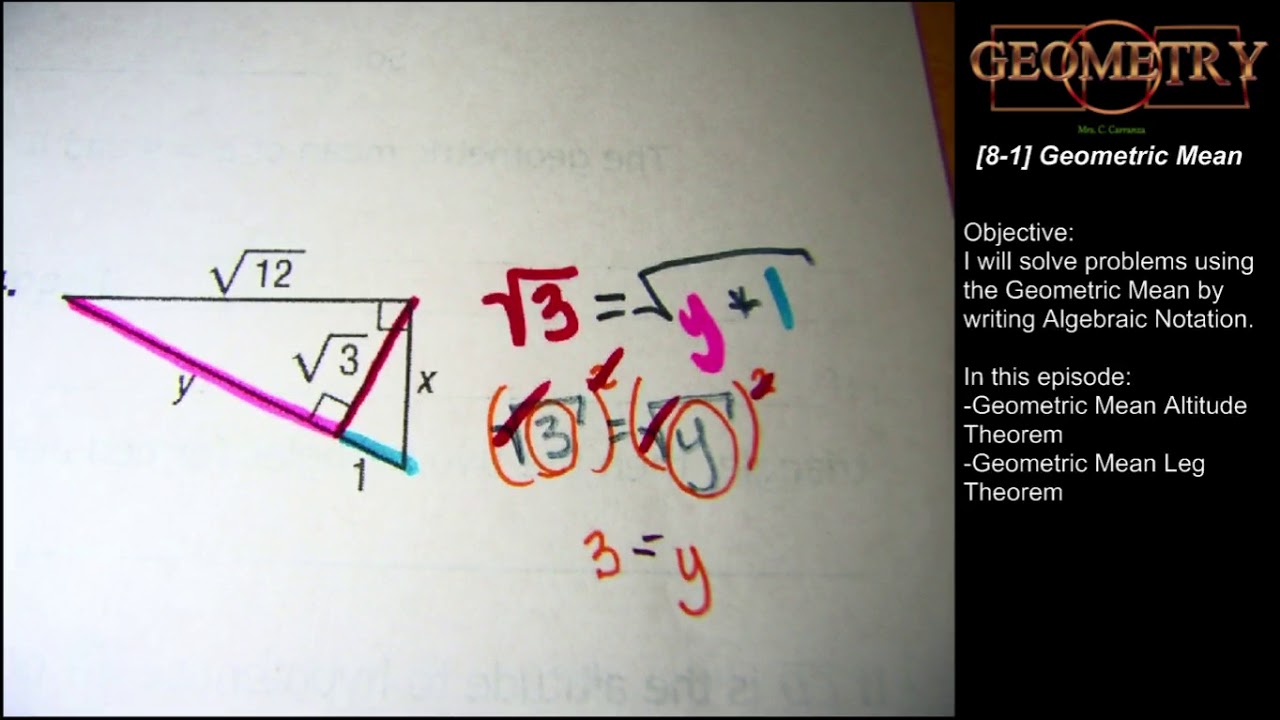 GEOMETRY
Mrs. C. Carranza
[8-1] Geometric Mean
Objective:
I will solve problems using
the Geometric Mean by
writing Algebraic Notation.
In this episode:
-Geometric Mean Altitude
Theorem
-Geometric Mean Leg
Theorem
√12
√3
x
y
1
√3 = √y * 1
(√3)² = (√y)²
3 = y